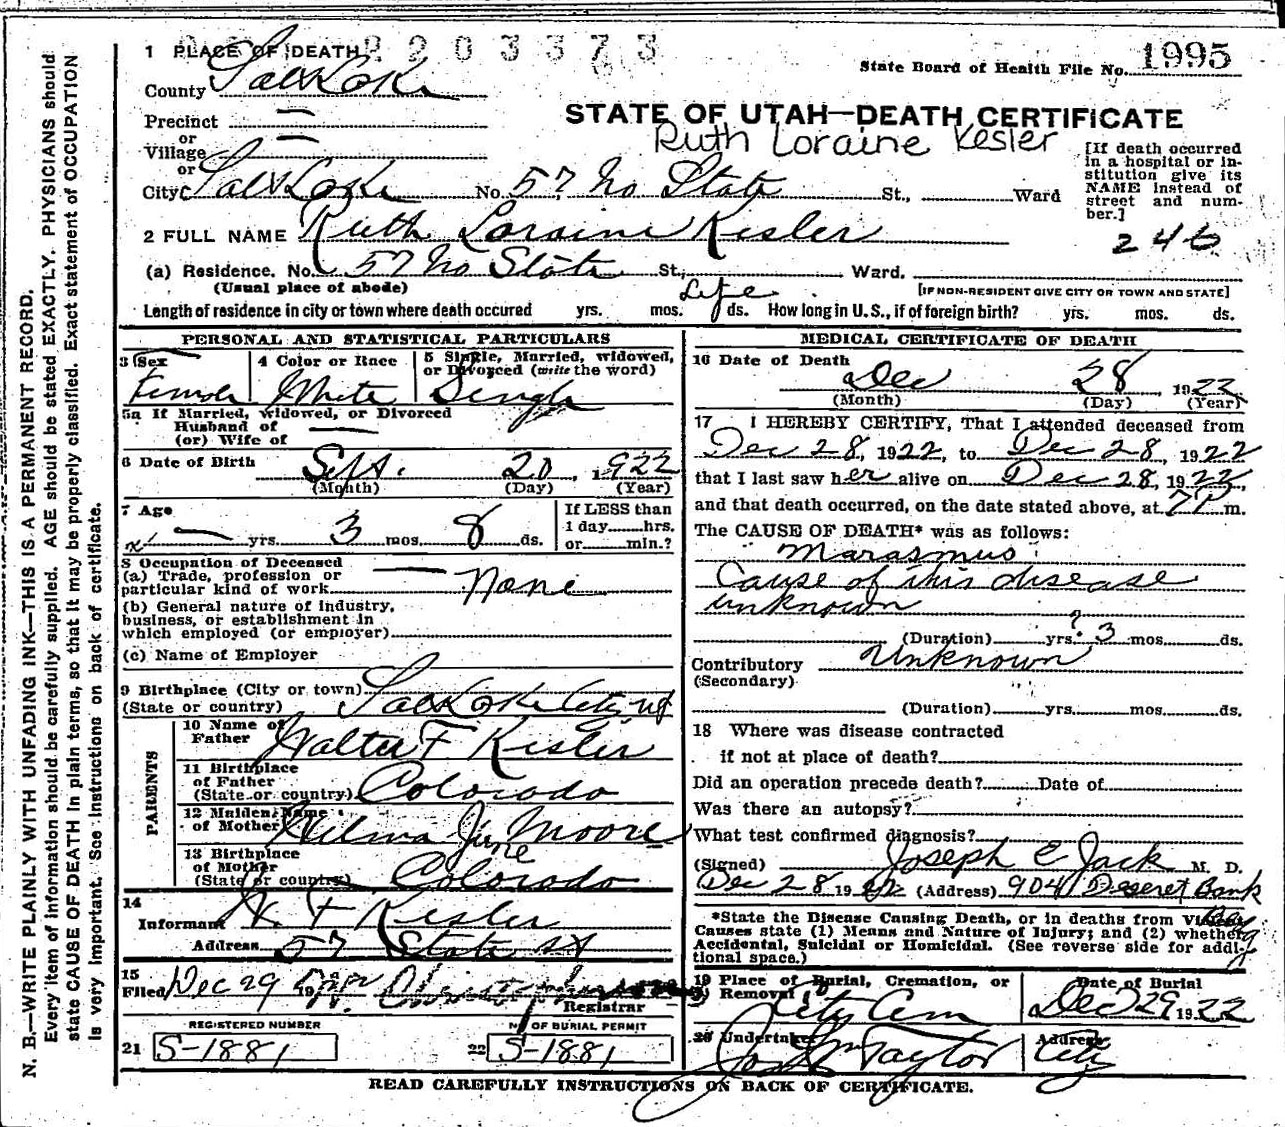 1 PLACE OF DEATH 2203373
State Board of Health File No. 1995
County Salt Lake
STATE OF UTAH—DEATH CERTIFICATE
Ruth Loraine Kesler
Precinct —
or
Village —
or
City Salt Lake No. 57 No State St., Ward
[If death occurred
in a hospital or in-
stitution give its
NAME instead of
street and num-
ber.]
246
2 FULL NAME Ruth Loraine Kesler
(a) Residence. No. 57 No State St., Ward.
(Usual place of abode)
[IF NON-RESIDENT GIVE CITY OR TOWN AND STATE]
Length of residence in city or town where death occured yrs. mos. Life ds. How long in U. S., if of foreign birth? yrs. mos. ds.
PERSONAL AND STATISTICAL PARTICULARS
3 Sex Female
4 Color or Race White
5 Single, Married, widowed,
or Divorced (write the word)
Single
5a If Married, widowed, or Divorced
Husband of
(or) Wife of —
6 Date of Birth Sept. 20 1922
(Month) (Day) (Year)
7 Age
— yrs. 3 mos. 8 ds.
If LESS than
1 day hrs.
or min.?
8 Occupation of Deceased
(a) Trade, profession or
particular kind of work — None
(b) General nature of industry,
business, or establishment in
which employed (or employer)
(c) Name of Employer
9 Birthplace (City or town)
(State or country) Salt Lake City Ut
PARENTS
10 Name of
Father Walter F Kesler
11 Birthplace
of Father
(State or country) Colorado
12 Maiden Name
of Mother Wilma June Moore
13 Birthplace
of Mother
(State or country) Colorado
14
Informant W F Kesler
Address 57 State st
15
Filed Dec 29 19
Registrar
REGISTERED NUMBER
21 S-1881
No. OF BURIAL PERMIT
22 S-1881
MEDICAL CERTIFICATE OF DEATH
16 Date of Death
Dec 28 1922
(Month) (Day) (Year)
17 I HEREBY CERTIFY, That I attended deceased from
Dec 28, 1922, to Dec 28, 1922
that I last saw her alive on Dec 28, 1922,
and that death occurred, on the date stated above, at 7P m.
The CAUSE OF DEATH* was as follows:
Marasmus
Cause of this disease
unknown
(Duration) yrs. ? 3 mos. ds.
Contributory Unknown
(Secondary)
(Duration) yrs. mos. ds.
18 Where was disease contracted
if not at place of death?
Did an operation precede death? Date of
Was there an autopsy?
What test confirmed diagnosis?
(Signed) Joseph E Jack M. D.
Dec 28 1922 (Address) 904 Deseret Bank
*State the Disease Causing Death, or in deaths from Violent
Causes state (1) Means and Nature of Injury; and (2) whether
Accidental, Suicidal or Homicidal. (See reverse side for addi-
tional space.)
19 Place of Burial, Cremation, or
Removal City Cem
Date of Burial
Dec 29 1922
20 Undertaker Jos Wm Taylor
Address
City
READ CAREFULLY INSTRUCTIONS ON BACK OF CERTIFICATE.
N. B.—WRITE PLAINLY WITH UNFADING INK—THIS IS A PERMANENT RECORD.
Every item of information should be carefully supplied. AGE should be stated EXACTLY. PHYSICIANS should
state CAUSE OF DEATH in plain terms, so that it may be properly classified. Exact statement of OCCUPATION
is very important. See instructions on back of certificate.